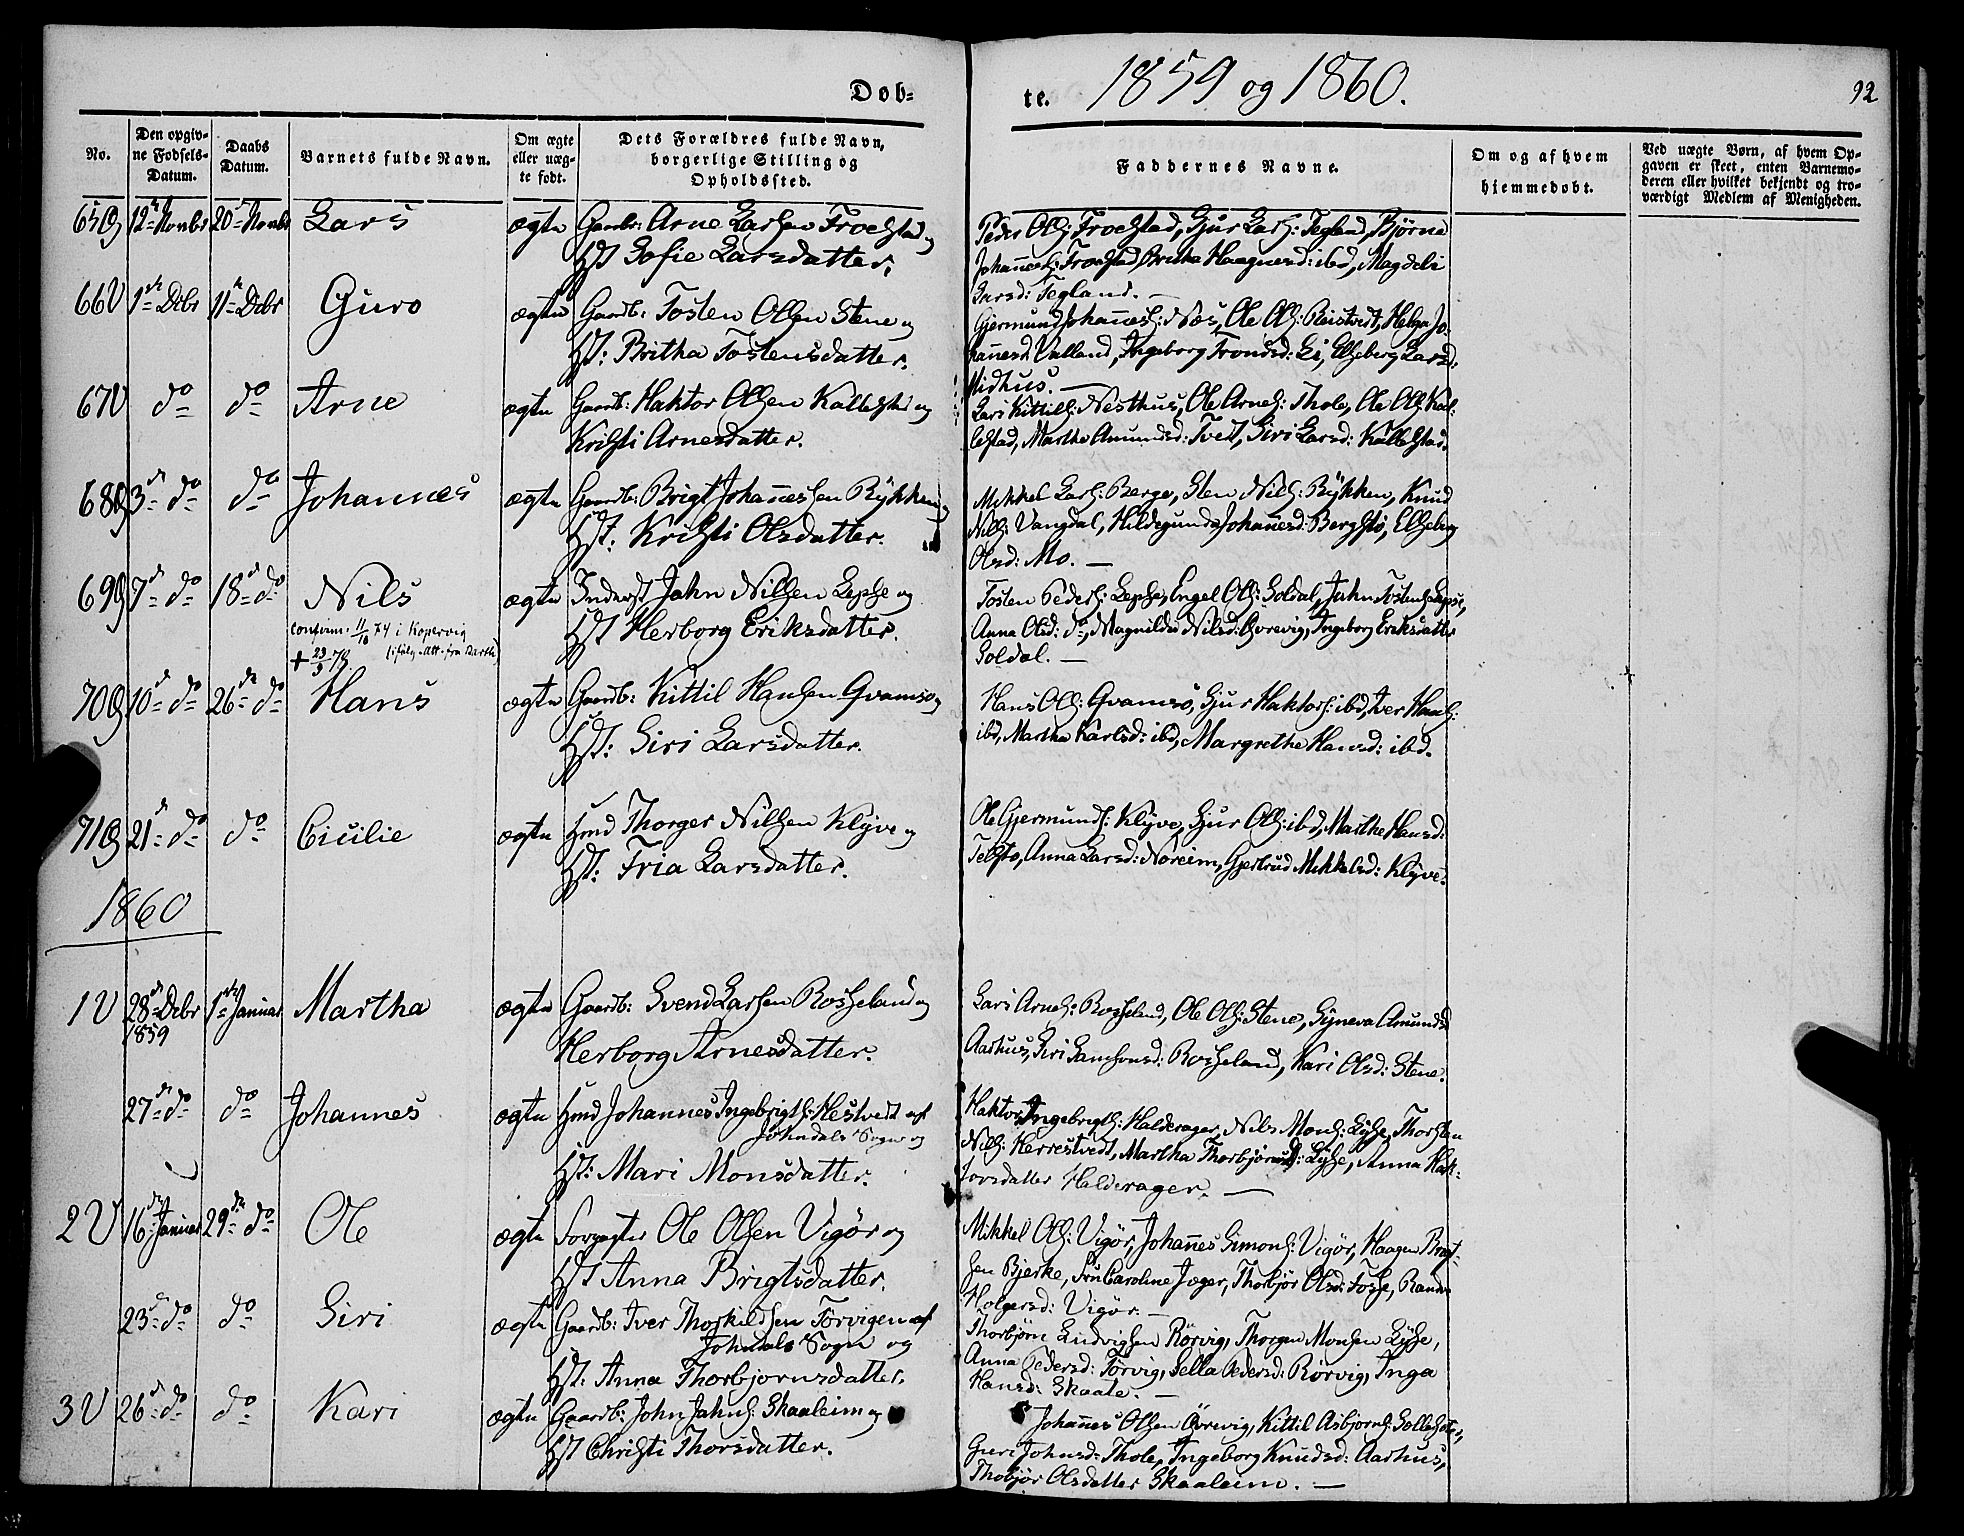 Døb-
te. 1859 og 1860.
92
No.
Den opgiv-
ne Fødsels-
Datum.
Daabs
Datum.
Barnets fulde Navn.
Om ægte
eller uæg-
te født.
Dets Forældres fulde Navn,
borgerlige Stilling og
Opholdssted.
Faddernes Navne.
Om og af hvem
hjemmedøbt.
Ved uægte Børn, af hvem Op-
gaven er skeet, enten Barnemo-
deren eller hvilket bekjendt og tro-
værdigt Medlem af Menigheden.
65 12 Novbr 20 Novbr Lars ægte Gaardbr: Arne Larsen Froestad og
Hst Sofie Larsdatter.
Peder Ols: Froestad, Sjur Lars: Tegland, Bjørne
Johannes: Froestad, Britha Haagensd: ibd, Magdeli
Larsd: Tegland. —
66V 1 Debr 11 Debr Guro ægte Gaardb: Tosten Olsen Stene og
Hst: Britha Tostensdatter.
Gjermund Johannes: Næs, Ole Ols: Reistvedt, Helga Jo-
hannesd: Valland, Ingeborg Trondsd: Li, Elseberg Larsd:
Midhus. —
67V do do Arne ægte Gaardb: Haktor Olsen Kallestad og
Kristi Arnesdatter.
Lars Kittils: Nesthus, Ole Arnes: Thole, Ole Ols: Kal-
lestad, Martha Amundsd: Tvedt, Siri Larsd: Kallestad.
68 3 do do Johannes ægte Gaardb: Brigt Johannessen Rykken og
Hst: Kristi Olsdatter.
Mikkel Lars: Berge, Sten Nils: Rykken, Knud
Nils: Vangdal, Hildegunda Johannesd: Bergstø, Elseberg
Olsd: Mo. —
69 7 do 18 do Nils ægte Inderst John Nilssen Lepsøe og
confirm: 11/10 74 i Kopervig
(ifølg. Att. fra
+ 23/3 78.
Hst Herborg Eriksdatter.
Tosten Peders: Lepsøe, Engel Ols: Soldal, John Tostens: Lepsøe,
Anna Olsd: do, Magnilda Nilsd: Øvrevig, Ingeborg Eriksdatter
Soldal. —
70 10 do 26 do Hans ægte Gaardb: Kittil Hansen Qvamsø og
Hst: Siri Larsdatter.
Hans Ols: Qvamsø, Sjur Haktors: ibd, Iver Hans:
ibd, Martha Karlsd: ibd, Margrethe Hansd: ibd.
71 21 do do Cicilie ægte Hmd Thorger Nilssen Klyve og
Hst: Fria Larsdatter.
Ole Gjermunds: Klyve, Sjur Ols: ibd, Marthe Hansd:
Telstø, Anna Larsd: Noreim, Gjertrud Mikkelsd: Klyve.
1860
1V 28 Debr 1 Januar Martha ægte Gaardb: Svend Larsen Rosseland og
1859
Herborg Arnesdatter.
Lars Arnes: Rosseland, Ole Ols: Stene, Syneva Amundsd:
Aarhus, Siri Samsonsd: Rosseland, Kari Olsd: Stene.
27 do do Johannes ægte Hmd Johannes Ingebrigts: Hestvedt af
Johndals Sogn og
Hst: Mari Monsdatter.
Haktor Ingebrigts: Halderager, Nils Mons: Lyse, Thorsten
Nils: Herrestvedt, Martha Thorbjørnsd: Lyse, Anna Hak-
torsdatter Halderager. —
2V 16 Januar 29 do Ole ægte Ole Olsen Vigør og
Hst Anna Brigtsdatter.
Mikkel Ols: Vigør, Johannes Simons: Vigør, Haagen Brigt-
sen Bjerke, Fru Caroline Jæger, Thorbjør Olsd: Fosse, Randi
Holgersd: Vigør. —
23 do do Siri ægte Gaardb: Iver Thorkildsen Torvigen af
Johndals Sogn og
Hst: Anna Thorbjørnsdatter.
Thorbjørn Ludvigsen Rørvig, Thorgen Monsen Lyse,
Anna Pedersd: Torvig, Sella Pedersd: Rørvig, Inga
Hansd: Skaate. —
3V 26 do do Kari ægte Gaardb: John Johns: Skaaleim og
Hst Christi Thorsdatter.
Johannes Olsen Øvrevig, Kittil Asbjørns:
Guri Johnsd: Thole, Ingeborg Knudsd: Aarhus,
Thobjør Olsdatter Skaaleim. —